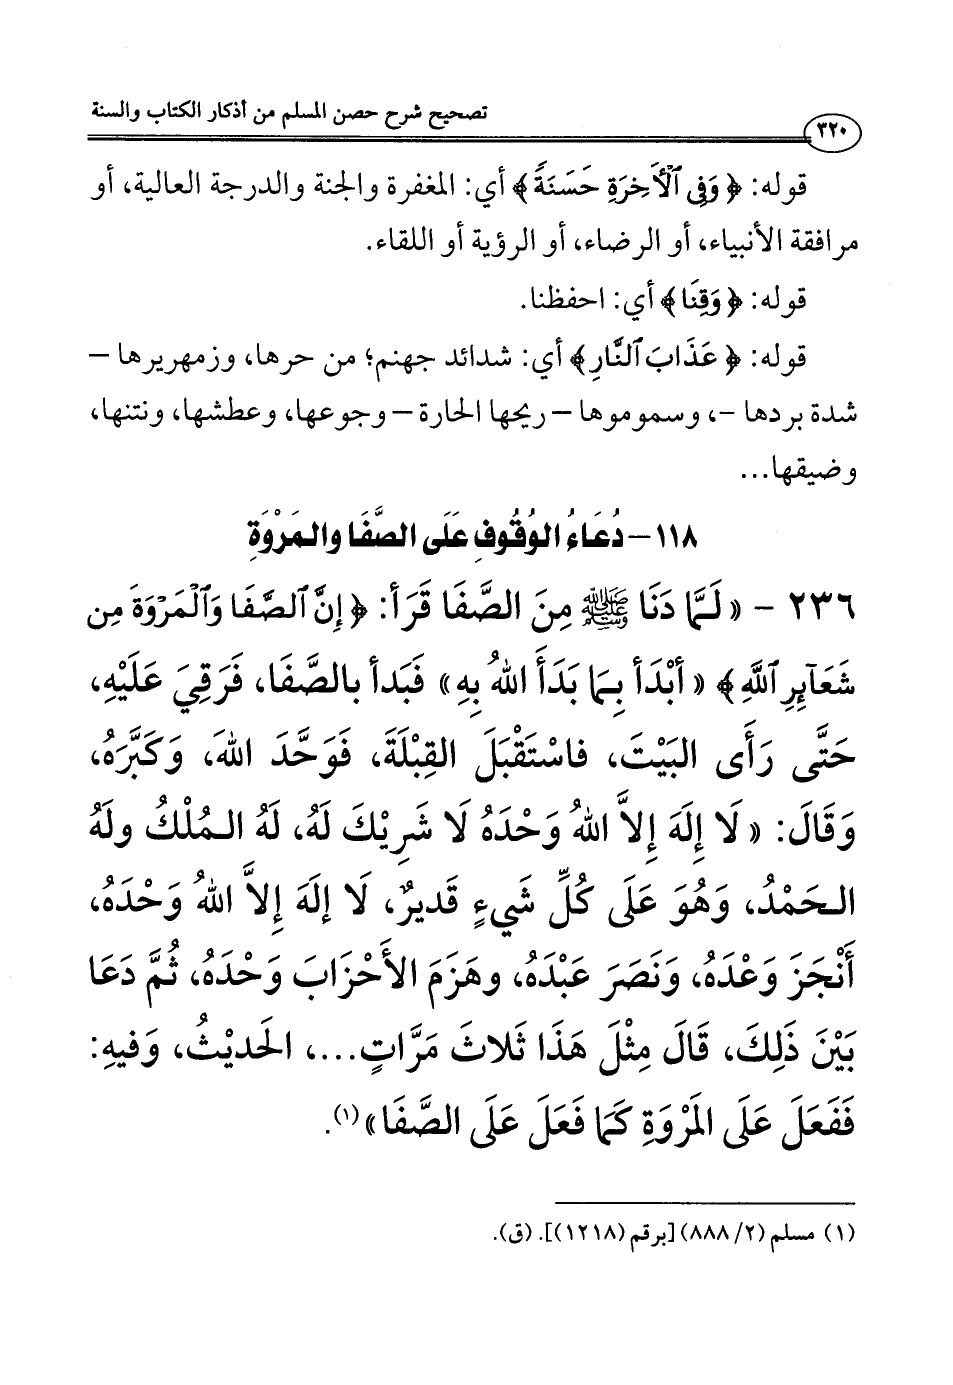 تصحيح شرح حصن المسلم من أذكار الكتاب والسنة
٣٢٠
قوله: ﴿وَفِي ٱلْأَخِرَةِ حَسَنَةً﴾ أي: المغفرة والجنة والدرجة العالية، أو
مرافقة الأنبياء، أو الرضاء، أو الرؤية أو اللقاء.
قوله: ﴿وَقِنَا﴾ أي: احفظنا.
قوله: ﴿عَذَابَ ٱلنَّارِ﴾ أي: شدائد جهنم؛ من حرها، وزمهريرها –
شدة بردها –، وسموموها – ريحها الحارة – وجوعها، وعطشها، ونتنها،
وضيقها...
١١٨ – دُعَاءُ الوُقُوفِ عَلَى الصَّفَا والمَرْوَةِ
٢٣٦ – «لَمَّا دَنَا ﷺ مِنَ الصَّفَا قَرَأَ: ﴿إِنَّ ٱلصَّفَا وَٱلْمَرْوَةَ مِن
شَعَآئِرِ ٱللَّهِ﴾ «أَبْدَأُ بِمَا بَدَأَ اللهُ بِهِ» فَبَدأ بالصَّفَا، فَرَقِيَ عَلَيْهِ،
حَتَّى رَأَى البَيْتَ، فاسْتَقْبَلَ القِبْلَةَ، فَوَحَّدَ اللهَ، وَكَبَّرَهُ،
وَقَالَ: «لَا إِلَهَ إِلاَّ اللهُ وَحْدَهُ لَا شَرِيْكَ لَهُ، لَهُ المُلْكُ ولَهُ
الحَمْدُ، وَهُوَ عَلَى كُلِّ شَيءٍ قَديرٌ، لَا إلَهَ إِلاَّ اللهُ وَحْدَهُ،
أَنْجَزَ وَعْدَهُ، وَنَصَرَ عَبْدَهُ، وهَزَمَ الأَحْزَابَ وَحْدَهُ، ثُمَّ دَعَا
بَيْنَ ذَلِكَ، قَالَ مِثْلَ هَذَا ثَلاثَ مَرَّاتٍ...، الحَديْثُ، وَفيهِ:
فَفَعَلَ عَلَى المَرْوَةِ كَمَا فَعَلَ عَلَى الصَّفَا»(١).
(١) مسلم (٢/ ٨٨٨) [برقم (١٢١٨)]. (ق).